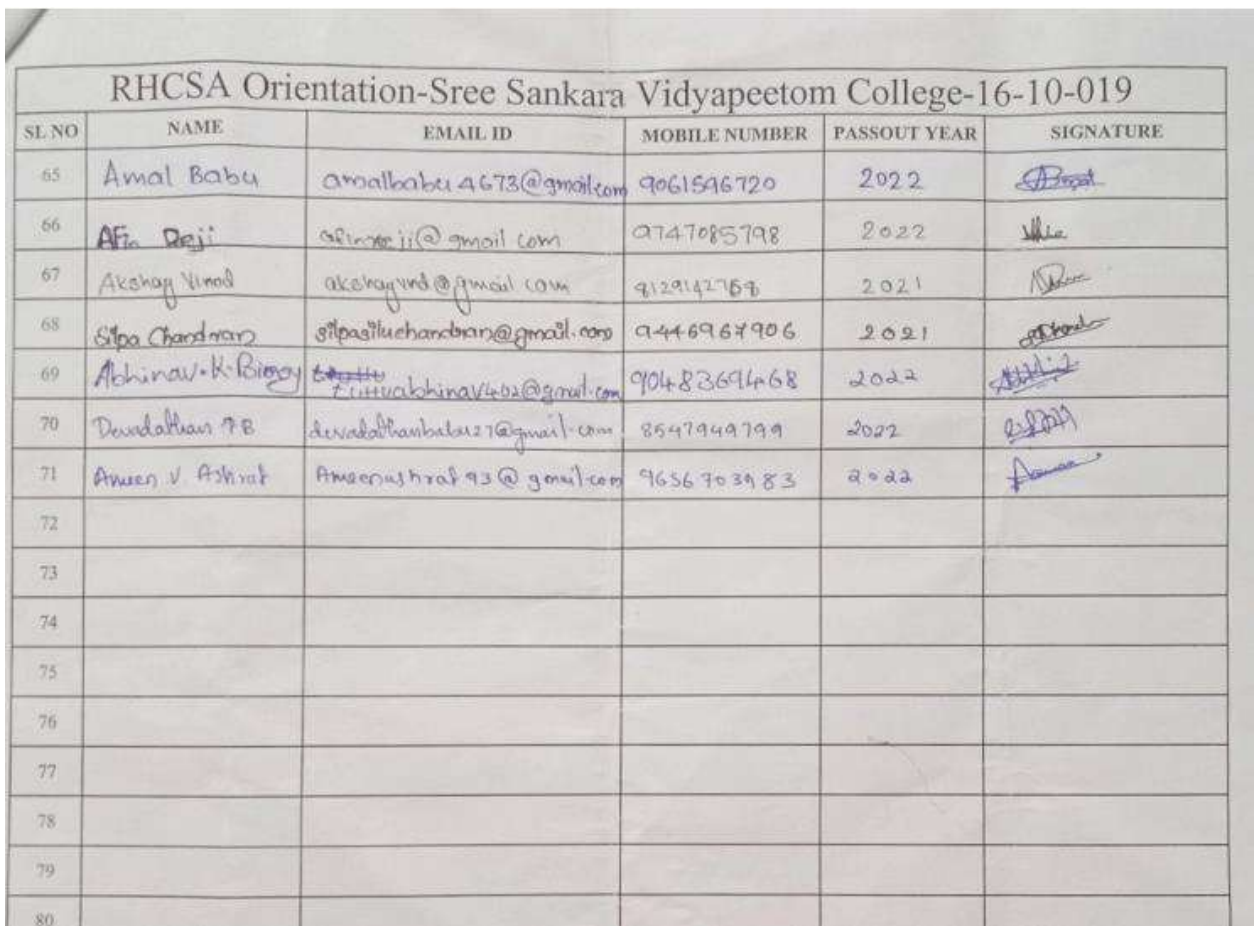 RHCSA Orientation-Sree Sankara Vidyapeetom College-16-10-019
SL NO NAME EMAIL ID MOBILE NUMBER PASSOUT YEAR SIGNATURE
65 Amal Babu amalbabu4673@gmail.com 9061596720 2022
66 Afin Reji @gmail com 9747085798 2022
67 Akshay Vinod akshayvnd@gmail com 2021
68 Silpa Chandran silpasiluchandran@gmail.com 9446967906 2021
69 Abhinav.K.Binoy 9048369468 2022
70 Devadathan P B devadathanbabu27@gmail.com 8547949799 2022
71 Ameen V Ashraf Ameenashraf93@gmail.com 9656703983 2022
72
73
74
75
76
77
78
79
80